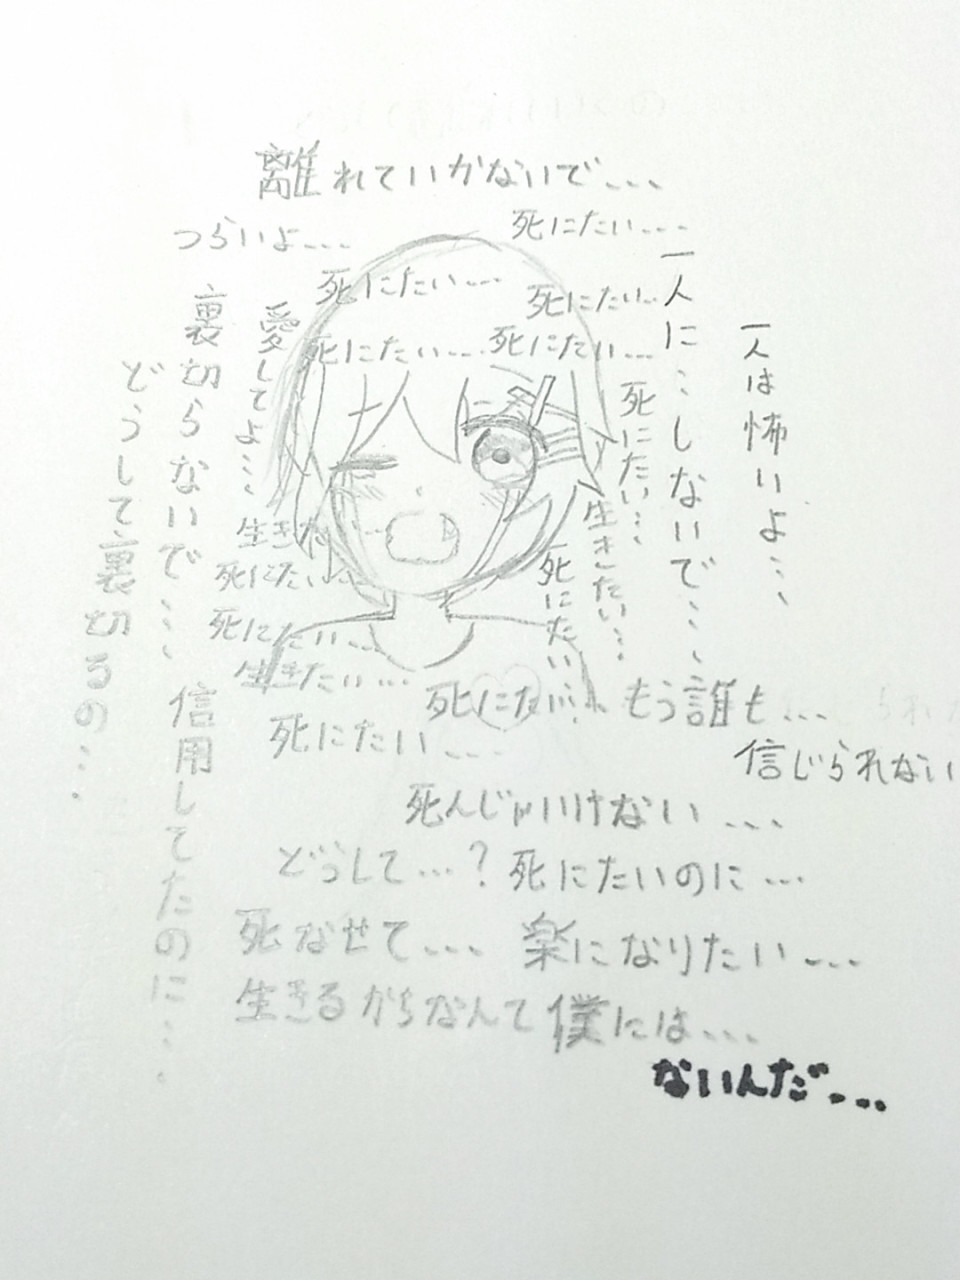 離れていかないで...
つらいよ...
死にたい...
死にたい...
死にたい...
死にたい...
死にたい...
一人に...しないで...
一人は怖いよ...
死にたい...
愛してよ...
裏切らないで...
どうして裏切るの...
生きたい...
死にたい...
生きた
死にたい...
死にたい...
生きたい...
信用してたのに...
死にたい...
もう誰も...
信じられない
死にたい...
死んじゃいけない...
どうして...?死にたいのに...
死なせて... 楽になりたい...
生きるかちなんて僕には...
ないんだ...